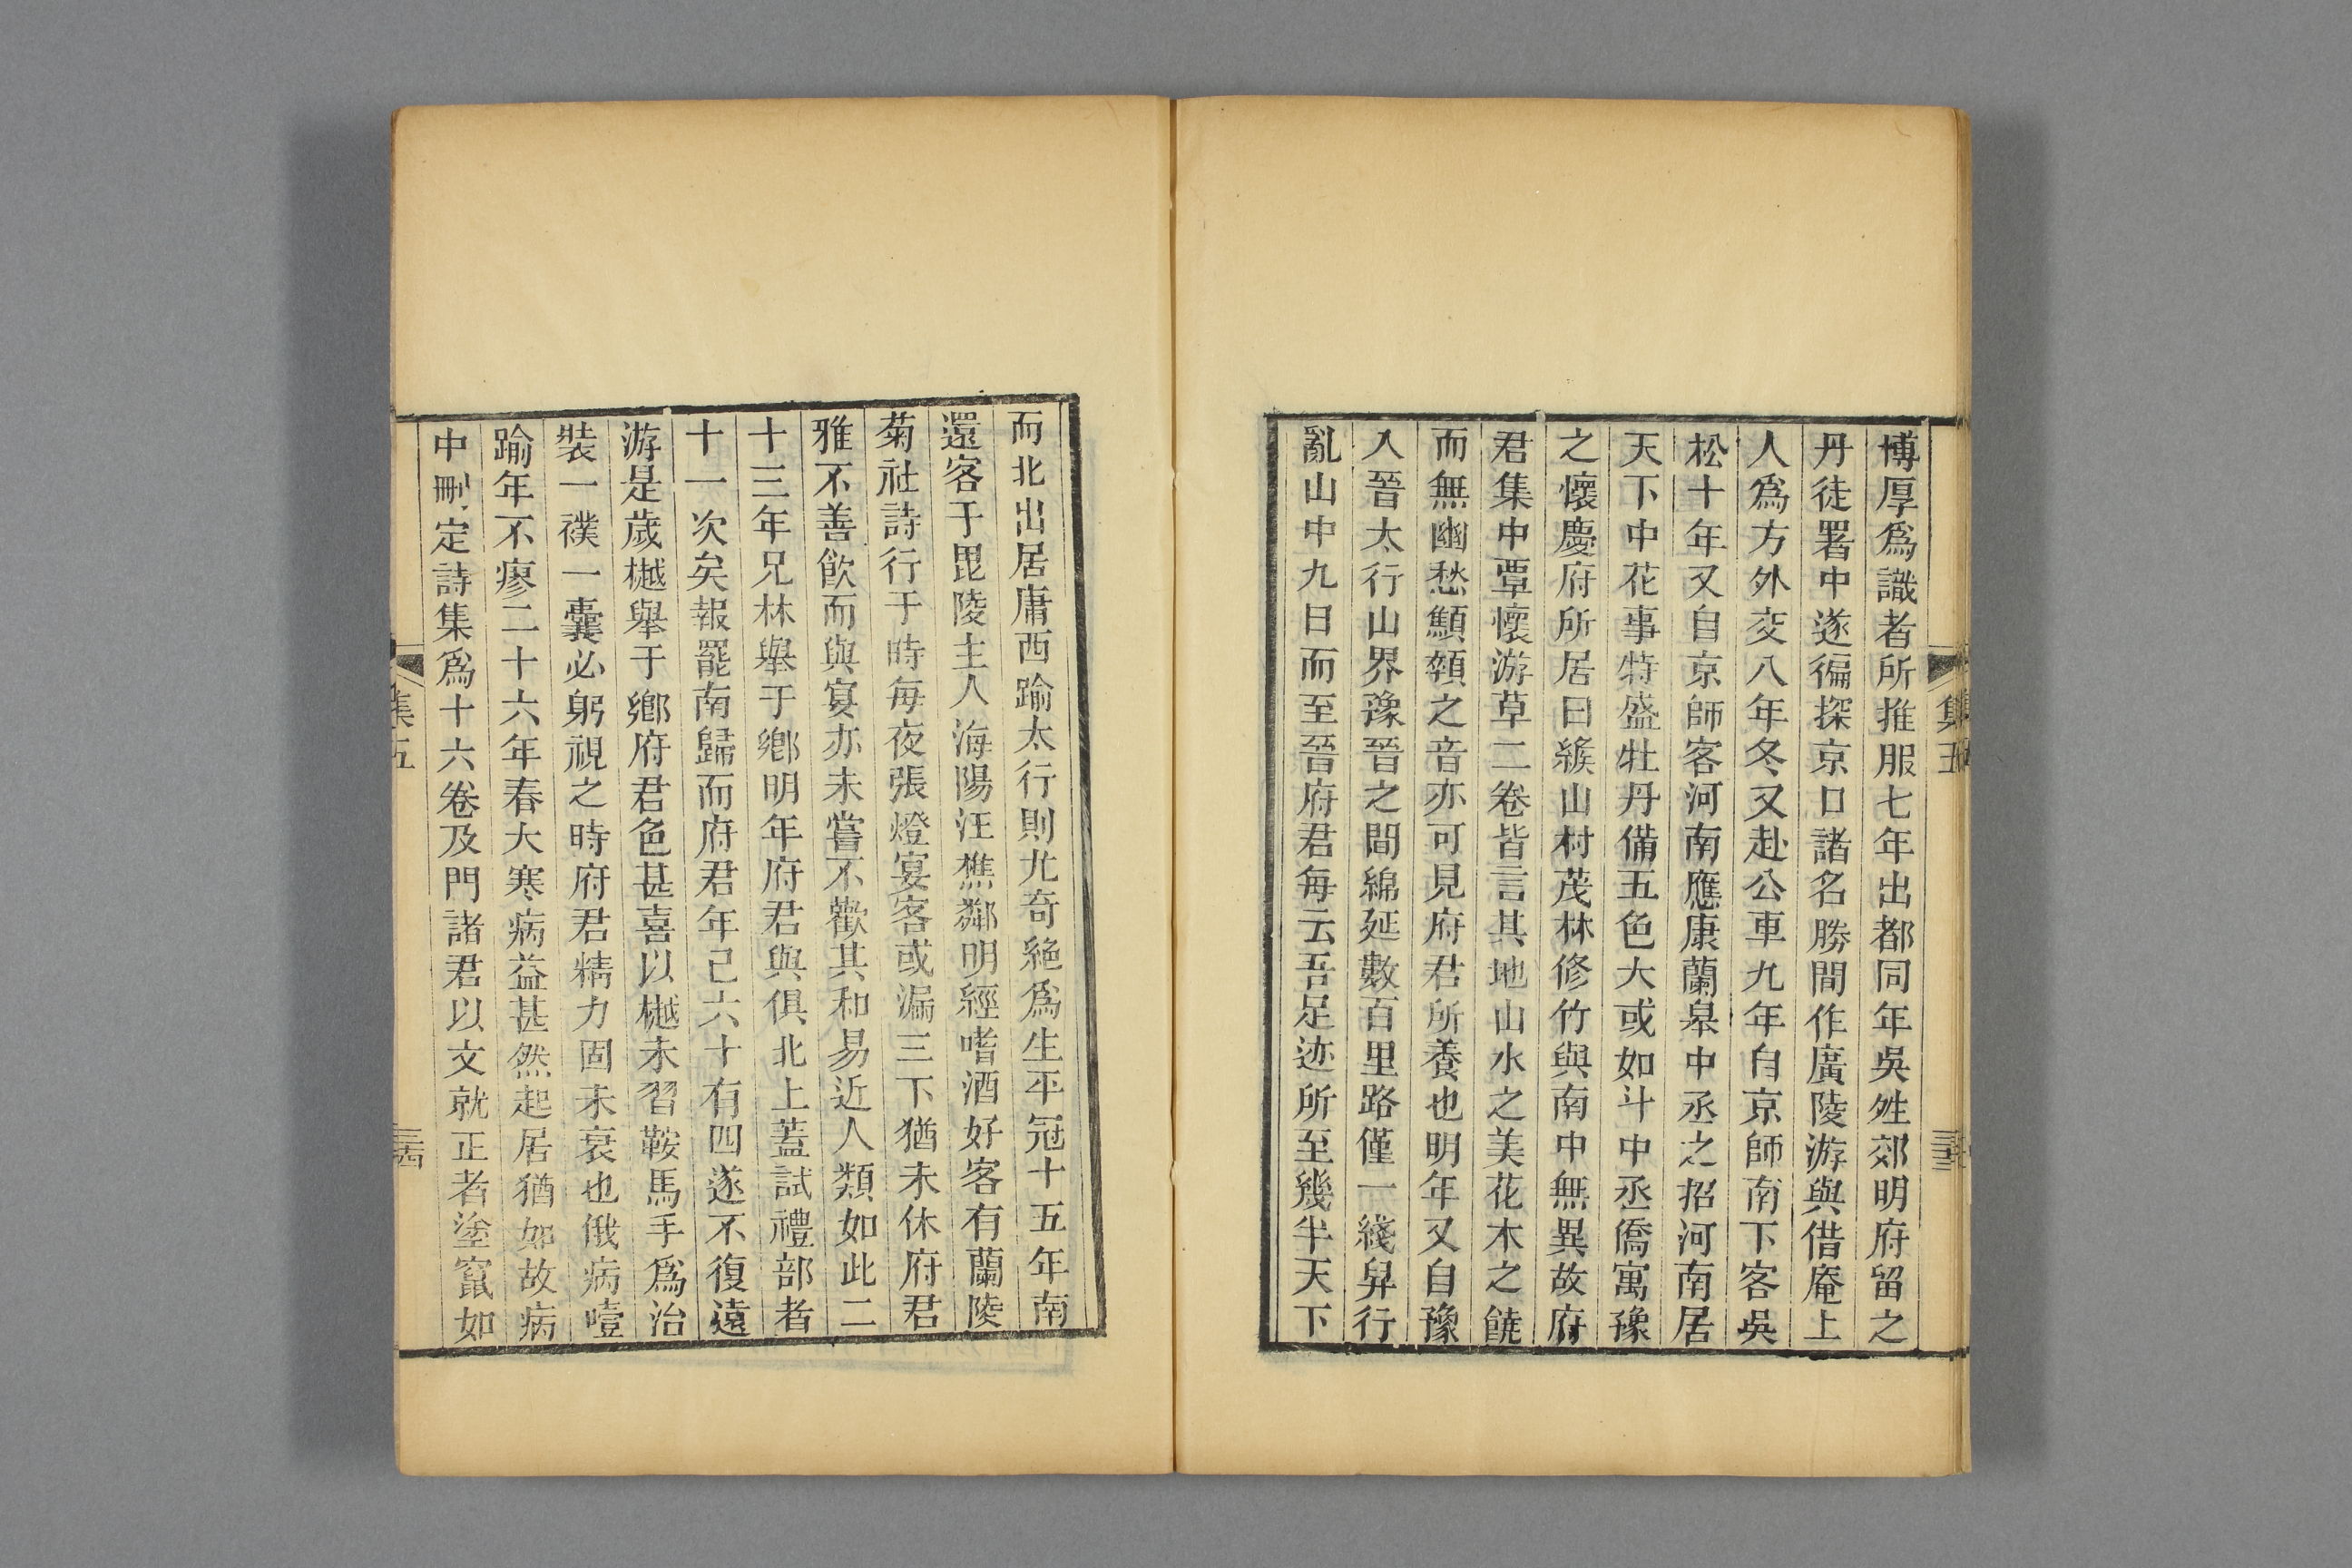 集五
三十三
博厚爲識者所推服七年出都同年吳甡郊明府留之
丹徒署中遂徧探京口諸名勝間作廣陵游與借庵上
人爲方外交八年冬又赴公車九年自京師南下客吳
松十年又自京師客河南應康蘭臯中丞之招河南居
天下中花事特盛牡丹備五色大或如斗中丞僑寓豫
之懷慶府所居曰緱山村茂林修竹與南中無異故府
君集中覃懷游草二卷皆言其地山水之美花木之饒
而無幽愁顦顇之音亦可見府君所養也明年又自豫
入晉太行山界豫晉之間綿延數百里路僅一綫舁行
亂山中九日而至晉府君每云吾足迹所至幾半天下
而北出居庸西踰太行則尤奇絶爲生平冠十五年南
還客于毘陵主人海陽汪樵鄰明經嗜酒好客有蘭陵
菊社詩行于時每夜張燈宴客或漏三下猶未休府君
雅不善飮而與宴亦未嘗不歡其和易近人類如此二
十三年兄林舉于鄉明年府君與俱北上蓋試禮部者
十一次矣報罷南歸而府君年已六十有四遂不復遠
游是歲樾舉于鄉府君色甚喜以樾未習鞍馬手爲治
裝一襆一囊必躬視之時府君精力固未衰也俄病噎
踰年不瘳二十六年春大寒病益甚然起居猶如故病
中刪定詩集爲十六卷及門諸君以文就正者塗竄如
集五
三十四